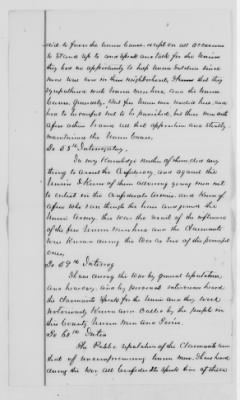 did to favor the Union Cause, except on all occasions
to stand up to and speak and talk for the Union
they has no opportunity to help Union soldiers since
none were ever in their neighborhood. I know that they
sympathised with Union men and the Union
Cause generally. But few Union men resided here, and
had to be careful not to be punished, but these men
after other braved all that opposition and strictly
maintained the Union Cause.
To 58th Interrogatory.
In my Knowledge neither of them did any
thing to the Confederacy and against the
Union. I Know of them advising young men not
to enlist in the Confederate Armies and Know of
after who ran through the lines and joined the
Union Army. this was the result of the influence
of the few Union men here and the Claimants
were Known during the War as two of the principal
ones.
To 59th Interrog
I Know during the War by general reputation
and hearsay, and by personal interviews heard
the Claimants speak for the Union and they were
notoriously Known and Called by the people in
this County Union Men and Tories.
To 60th Inter
The Public reputation of the Claimants was
that of uncompromising Union men. I have heard
during the War all Confederates speak of them